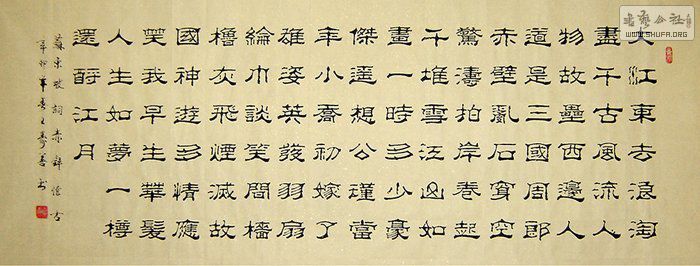 大江東去浪淘
盡千古風流人
物故壘西邊人
道是三國周郎
赤壁亂石穿空
驚濤拍岸卷起
千堆雪江山如
畫一時多少豪
傑遥想公瑾當
年小喬初嫁了
雄姿英發羽扇
綸巾談笑間檣
櫓灰飛煙滅故
國神遊多情應
笑我早生華髮
人生如夢一樽
還酹江月
蘇東坡詞赤壁懷古
辛卯
書藝公社
WWW.SHUFA.ORG